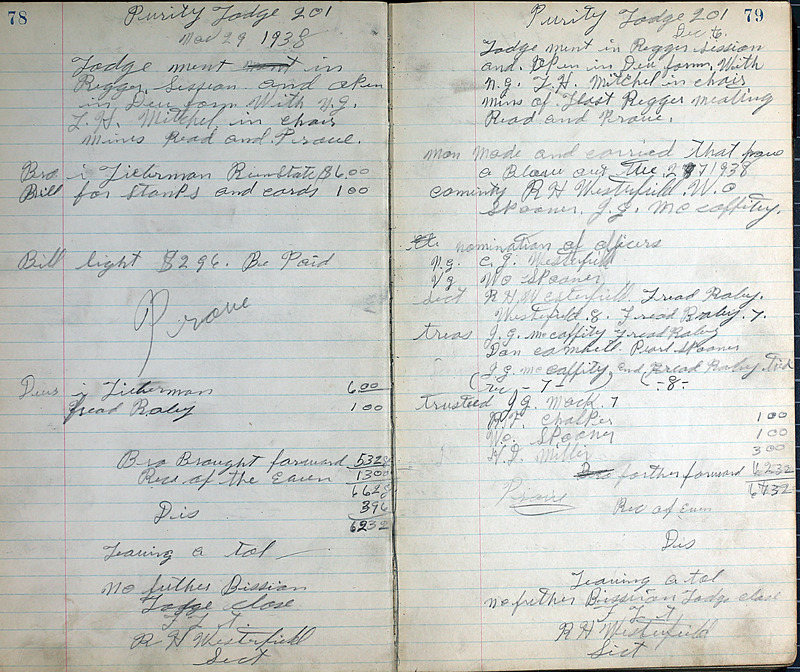 78
Purity Lodge 201
Nov 29 1938
Lodge ment in
Regger Session and open
in Deu form With N.G.
L.H. Mitchel in chair
mins Read and Prove.
Bro i Lieberman RiseState $6.00
Bill for stanps and cards 1 00
Bill light $2 96. Be Paid
Prove
Dues i Lieberman 6 00
Fread Raley 1 00
Bro Brought forward 5328
Recs of the Eaven 1300
6628
Dis 396
6232
Leaving a tol
No futher Bission
Lodge close
F L T
R H Westerfield
Sect
Purity Lodge 201 79
Dec 6.
Lodge ment in Regger Session
and Open in Deu form, With
N.g. L.H. Mitchel in chair
mins of Last Regger meating
Read and Prove.
mon made and carried that have
a Blow out the 27 1938
cominty R H Westerfield W.O
Spooner, J.J. McCaffity.
nomination of officers
N.g. C.J. Westerfield
Vg Wo Spooner
Sect R H Westerfield Fread Raley.
Westerfield. 8. Fread Raley. 7.
treas J.J. mccaffity Fread Raley
Dan cambell. Pearl Spooner
J.J. mccaffity and Fread Raley tied
- 7 - - 8 -
trusteed J.J. Mack. 7
Chalker 1 00
Wo. Spooner 1 00
H.D. Miller 3 00
forther forward 6232
Prove 6732
Rec of Even
Dis
Leaving a tol
no futher Bission Lodge close
F L T
R H Westerfield
Sect